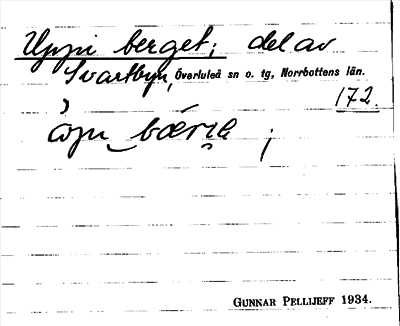 Uppi berget; del av
Svartbyn, Överluleå sn o. tg, Norrbottens län.
172.
GUNNAR PELLIJEFF 1934.